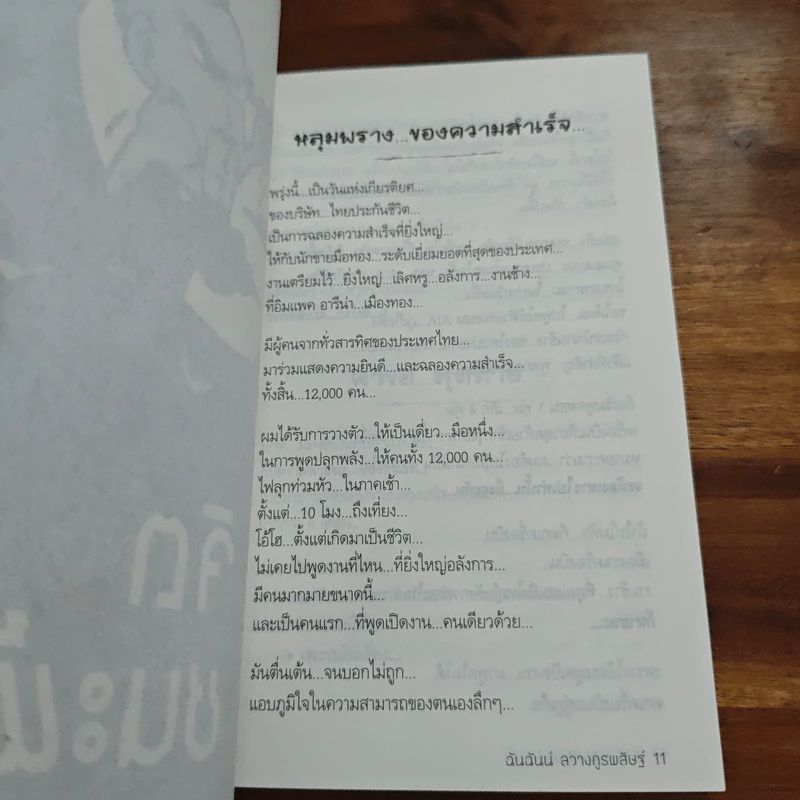 หลุมพราง...ของความสำเร็จ...
พรุ่งนี้...เป็นวันแห่งเกียรติยศ...
ของบริษัท...ไทยประกันชีวิต...
เป็นการฉลองความสำเร็จที่ยิ่งใหญ่...
ให้กับนักขายมือทอง...ระดับเยี่ยมยอดที่สุดของประเทศ...
งานเตรียมไว้...ยิ่งใหญ่...เลิศหรู...อลังการ...งานช้าง...
ที่อิมแพค อารีน่า...เมืองทอง...
มีผู้คนจากทั่วสารทิศของประเทศไทย...
มาร่วมแสดงความยินดี...และฉลองความสำเร็จ...
ทั้งสิ้น...12,000 คน...
ผมได้รับการวางตัว...ให้เป็นเดี่ยว...มือหนึ่ง...
ในการพูดปลุกพลัง...ให้คนทั้ง 12,000 คน...
ไฟลุกท่วมหัว...ในภาคเช้า...
ตั้งแต่...10 โมง...ถึงเที่ยง...
โอ้โฮ...ตั้งแต่เกิดมาเป็นชีวิต...
ไม่เคยไปพูดงานที่ไหน...ที่ยิ่งใหญ่อลังการ...
มีคนมากมายขนาดนี้...
และเป็นคนแรก...ที่พูดเปิดงาน...คนเดียวด้วย...
มันตื่นเต้น...จนบอกไม่ถูก...
แอบภูมิใจในความสามารถของตนเองลึกๆ...
ฉันฉันน์ ลวางกูรพสิษฐ์ 11
จิต
ชนะ